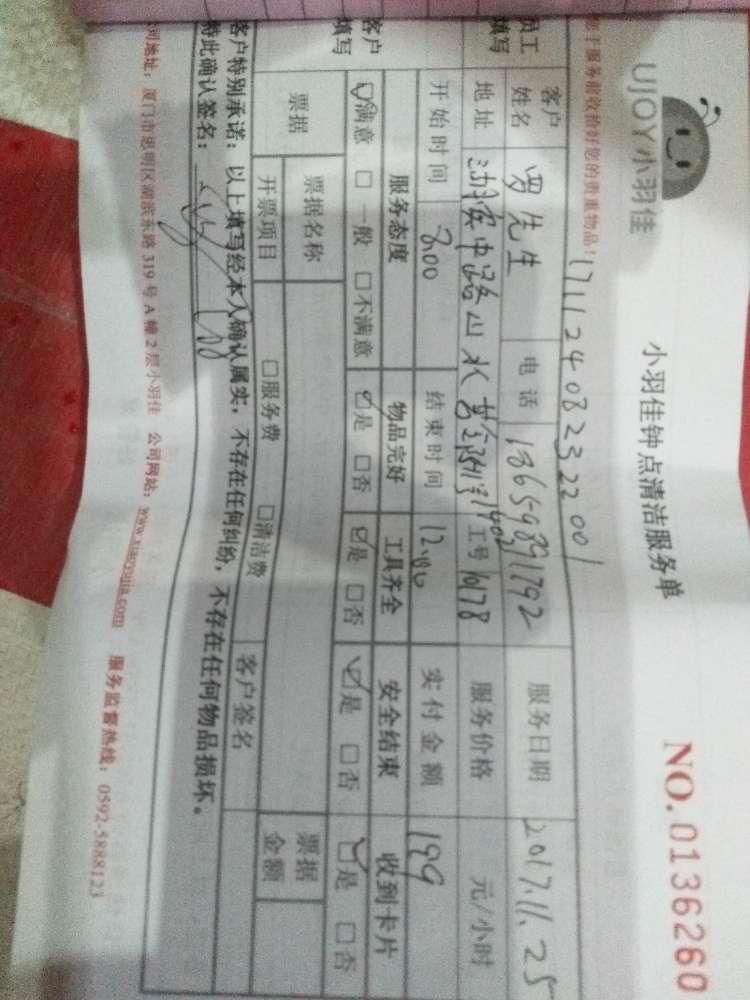 UJOY小羽佳
小羽佳钟点清洁服务单
NO.0136260
于服务前收拾好您的贵重物品!
17112408232200
员工填写
客户姓名 罗先生 电话 18659891792 服务日期 2017.11.25
地址 湖滨中路山水 1402 工号 10178 服务价格 元/小时
开始时间 8.00 结束时间 12.00 实付金额 199
客户填写
服务态度 物品完好 工具齐全 安全结束 收到卡片
☑满意 □一般 □不满意 ☑是 □否 ☑是 □否 ☑是 □否 ☑是 □否
票据 票据名称 □服务费 □清洁费 票据金额
开票项目 客户签名
客户特别承诺:以上填写经本人确认属实,不存在任何纠纷,不存在任何物品损坏。
特此确认签名:
司地址:厦门市思明区湖滨东路319号A幢2层小羽佳 公司网站:www.xiaoyujia.com 服务监督热线:0592-5888123